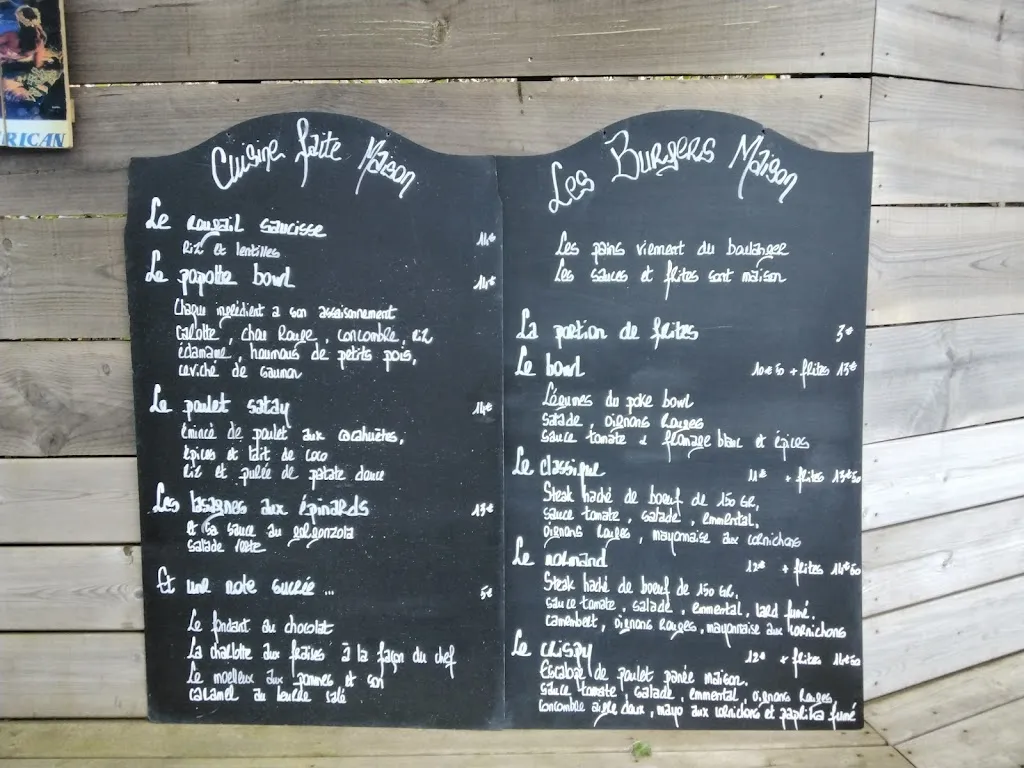 RICAN
Cuisine faite Maison
Le rougail saucisse 14€
Riz et lentilles
Le popotte bowl 14€
Chaque ingrédient a son assaisonnement
Carotte, chou rouge, concombre, riz
édamame, houmous de petits pois,
ceviché de saumon
Le poulet satay 14€
émincé de poulet aux cacahuètes,
épices et lait de coco
Riz et purée de patate douce
Les lasagnes aux épinards 13€
et sa sauce au gorgonzola
salade verte
Et une note sucrée ... 5€
Le fondant au chocolat
La charlotte aux fraises à la façon du chef
Le moelleux aux pommes et son
caramel au beurre salé
Les Burgers Maison
Les pains viennent du boulanger
Les sauces et frites sont maison
La portion de frites 3€
Le bowl 10€50 + frites 13€
Légumes du poke bowl
salade, oignons rouges
sauce tomate & fromage blanc et épices
Le classique 11€ + frites 13€50
Steak haché de boeuf de 150 GR,
sauce tomate, salade, emmental,
oignons rouges, mayonnaise aux cornichons
Le normand 12€ + frites 14€50
Steak haché de boeuf de 150 GR,
sauce tomate, salade, emmental, lard fumé,
camembert, oignons rouges, mayonnaise aux cornichons
Le crispy 12€ + frites 14€50
Escalope de poulet panée maison,
sauce tomate, salade, emmental, oignons rouges,
concombre aigre doux, mayo aux cornichons et paprika fumé